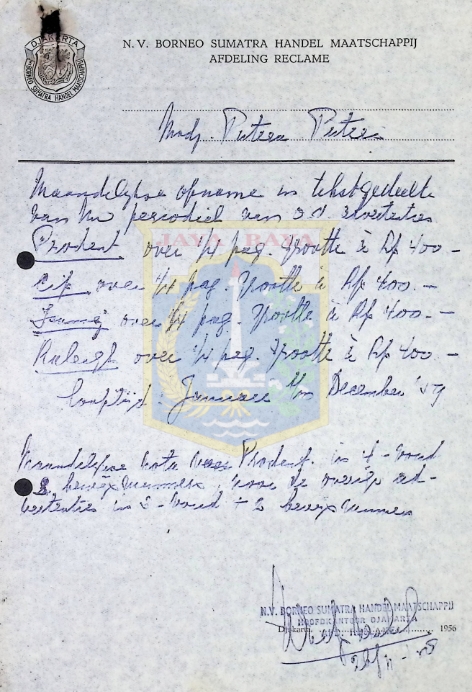 DJAKARTA
BORNEO SUMATRA HANDEL MAATSCHAPPIJ
N. V. BORNEO SUMATRA HANDEL MAATSCHAPPIJ
AFDELING RECLAME
Madj. Putera Puteri
Maandelijkse opname in tekstgedeelte
van Uw periodiek van o.d. advertenties
JAYA RAYA
Prodent over 1/4 pag. grootte à Rp 400.-
over 1/4 pag. grootte à Rp 400.-
over 1/4 pag. grootte à Rp 400.-
Raleigh over 1/4 pag. grootte à Rp 400.-
Looptijd: Januari t/m December '59
Maandelijkse nota over Prodent in
bewijsnummers voor de overige ad-
vertenties in bewijsnummers
N.V. BORNEO SUMATRA HANDEL MAATSCHAPPIJ
HOOFDKANTOOR DJAKARTA
Djakarta, 1956